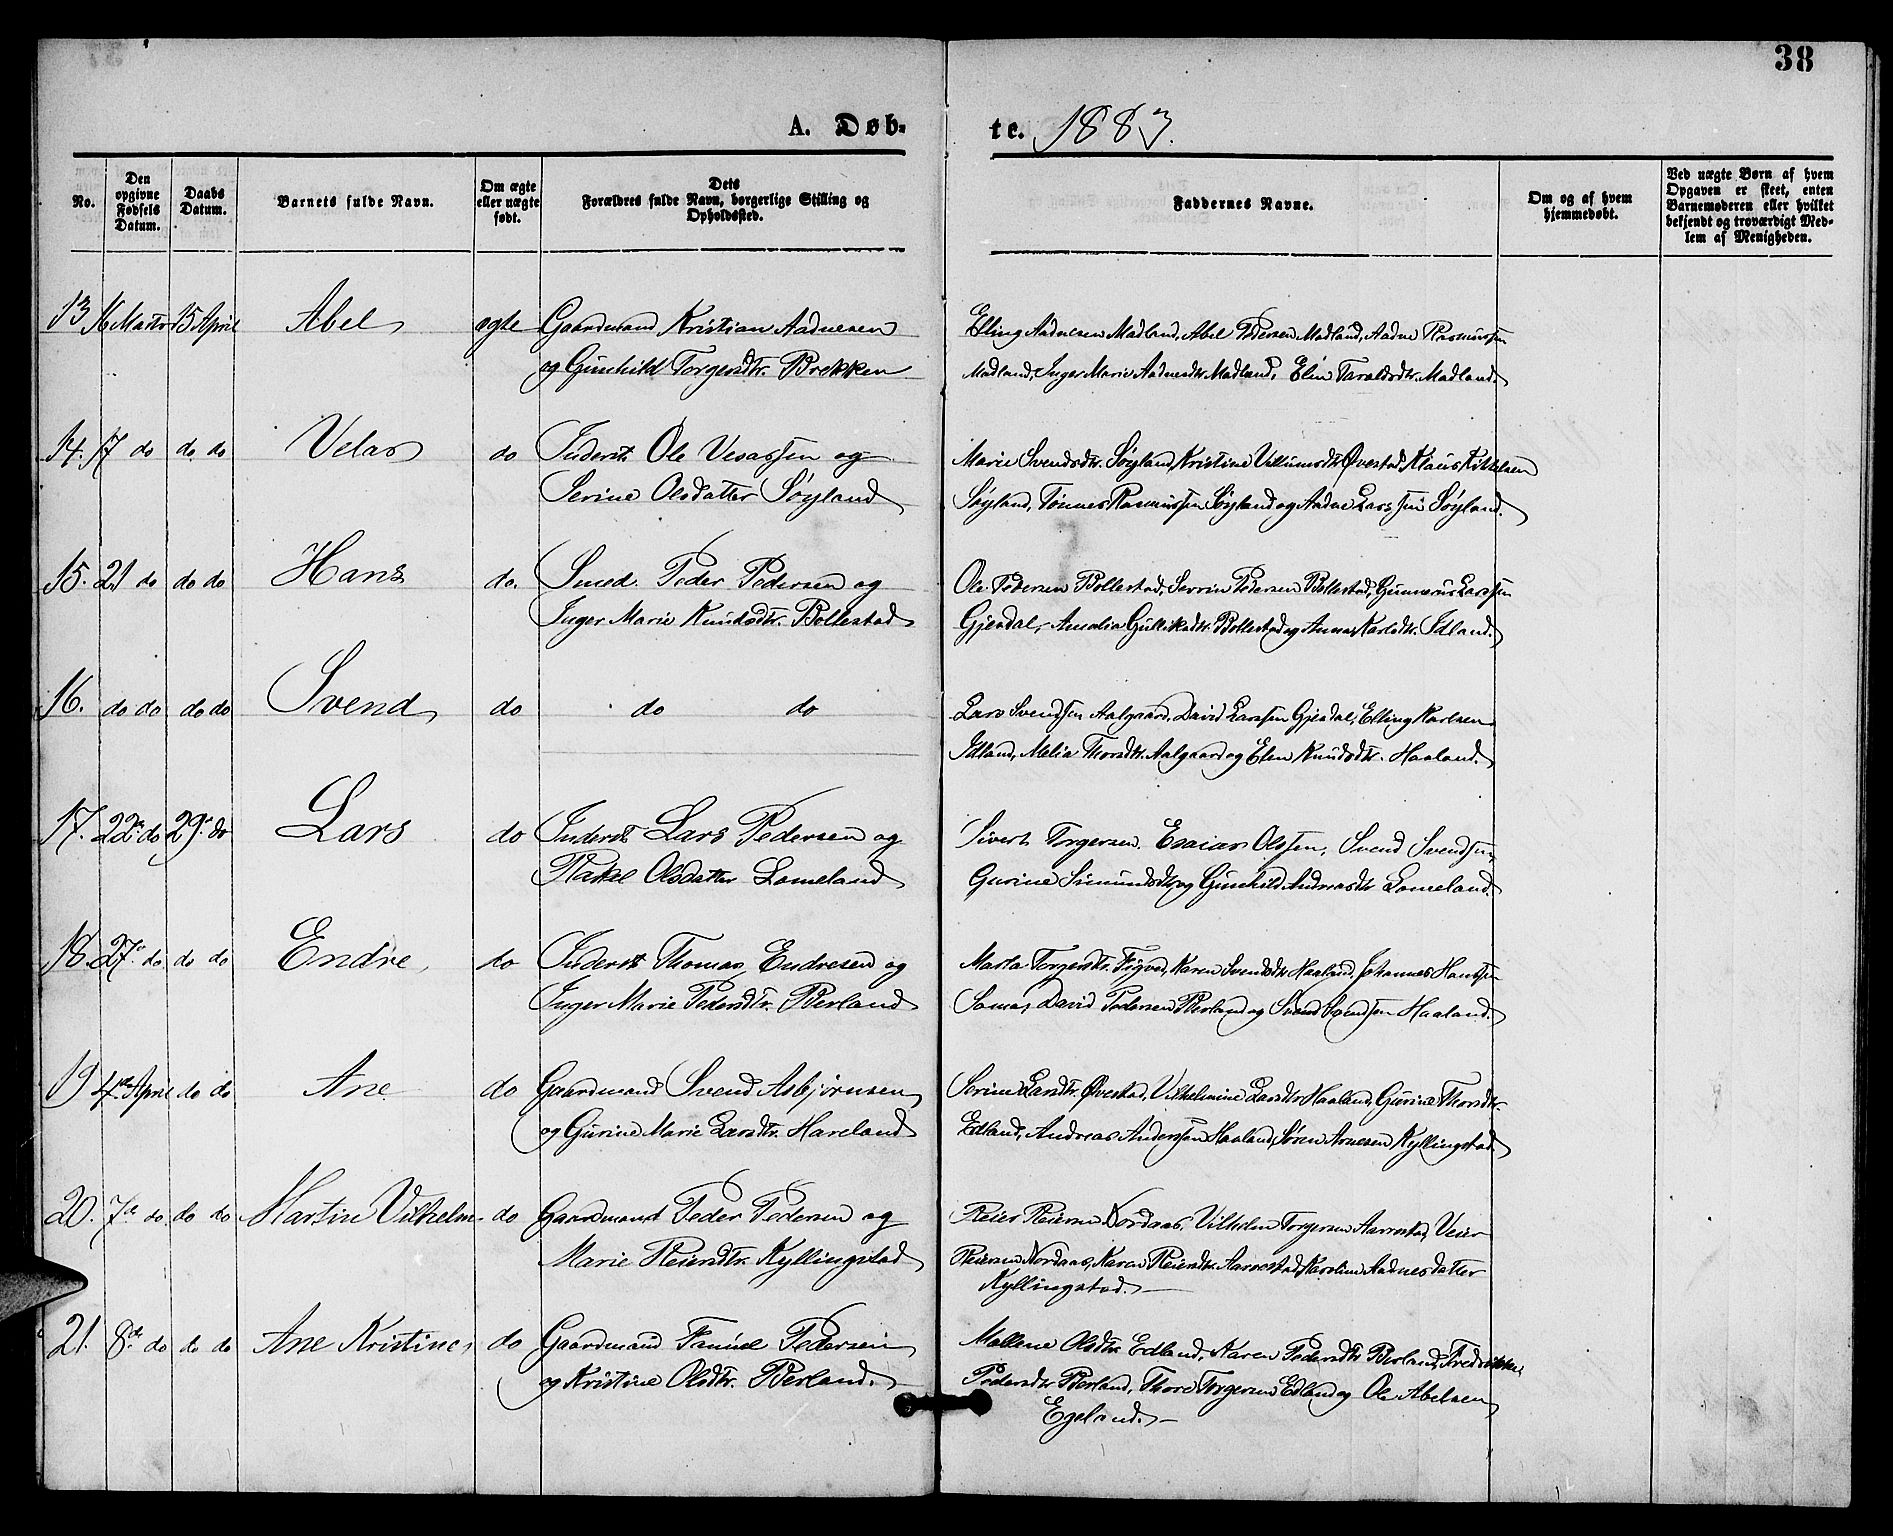 38
A. Døb- te. 1883.
No.
Den opgivne Fødsels Datum.
Daabs Datum.
Barnets fulde Navn.
Om ægte eller uægte født.
Dets Forældres fulde Navn, borgerlige Stilling og Opholdssted.
Faddernes Navne.
Om og af hvem hjemmedøbt.
Ved uægte Børn af hvem Opgaven er skeet, enten Barnemoderen eller hvilket bekjendt og troværdigt Medlem af Menigheden.
13 16 Marts 15 April Abel ægte Gaardmand Kristian Aadnesen Elling Aadnesen Madland, Abel Pedersen Madland, Aadne Rasmussen
og Gunhild Torgersdtr. Brekken Madland, Inger Marie Aadnesdtr. Madland, Elin Taraldsdtr. Madland.
14. 17 do do do Velas do Inderst Ole Vesassen og Marie Svendsdtr. Søyland, Kristine Villumsdtr. Øvestad, Klaus Kittelsen
Serine Olsdatter Søyland Søyland, Tønnes Rasmussen Søyland og Aadne Larssen Søyland.
15. 21 do do do Hans do. Smed Peder Pedersen og Ole Pedersen Bollestad, Servin Pedersen Bollestad, Gunnarius Larssen
Inger Marie Knudsdtr. Bollestad Gjesdal, Amalia Gullikadtr. Bollestad og Anna Karlsdtr. Idland.
16. do do do do Svend do do do Lars Svendsen Aalgaard, David Larssen Gjesdal, Elling Karlsen
Idland, Malia Thorsdtr. Aalgaard og Elen Knudsdtr. Haaland.
17. 22de do 29. do Lars do Inderst Lars Pedersen og Sivert Torgersen, Esaias Olssen, Svend Svendsen
Rakel Olsdatter Lomeland Gurine Simundsdtr. og Gunhild Andreasdtr Lomeland.
18. 27. do do do Endre do Inderst Thomas Endresen og Marta Torgersdtr. Figved, Karen Svendsdtr. Haaland, Johannes Hanssen
Inger Marie Pedersdtr. Berland Soma, David Pedersen Berland og Svend Svendsen Haaland.
19 4de April do do Ane do Gaardmand Svend Asbjørnsen Serine Larsdtr. Øvestad, Vilhelmine Larsdtr Haaland, Gurine Thorsdtr.
og Gurine Marie Larsdtr. Haveland Edland, Andreas Anderssen Haaland, Søren Arnesen Kyllingstad.
20. 7de do do do Martin Vilhelm do Gaardmand Peder Pedersen og Reier Reiersen Nordaas, Vilhelm Torgersen Aarrestad, Veier
Marie Reiersdtr. Kyllingstad Reiersen Nordaas, Karen Reiersdtr. Aarrestad, Karoline Aadnesdatter
Kyllingstad.
21. 8de do do do Ane Kristine do Gaardmand Samuel Pedersen Mallene Olsdtr. Edland, Karen Pedersdtr. Berland, Fredrikke
og Kristine Olsdtr. Berland. Pedersdtr. Berland, Thore Torgersen Edland og Ole Abelsen
Egeland.